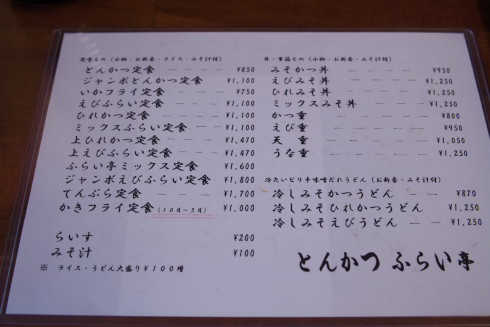 定食もの（小鉢・お新香・ライス・みそ汁付）
とんかつ定食 ¥850
ジャンボとんかつ定食 ¥1,100
いかフライ定食 ¥750
えびふらい定食 ¥1,100
ひれかつ定食 ¥1,100
ミックスふらい定食 ¥1,100
上ひれかつ定食 ¥1,470
上えびふらい定食 ¥1,470
ふらい亭ミックス定食 ¥1,600
ジャンボえびふらい定食 ¥1,800
てんぷら定食 ¥1,700
かきフライ定食（10月～3月） ¥1,000
らいす ¥200
みそ汁 ¥100
※ ライス・うどん大盛り¥100増
丼・重箱もの（小鉢・お新香・みそ汁付）
みそかつ丼 ¥950
えびみそ丼 ¥1,250
ひれみそ丼 ¥1,250
ミックスみそ丼 ¥1,250
かつ重 ¥800
えび重 ¥950
天重 ¥1,050
うな重 ¥1,250
冷たいピリ辛味噌だれうどん（お新香・みそ汁付）
冷しみそかつうどん ¥870
冷しみそひれかつうどん ¥1,250
冷しみそえびうどん ¥1,250
とんかつ ふらい亭